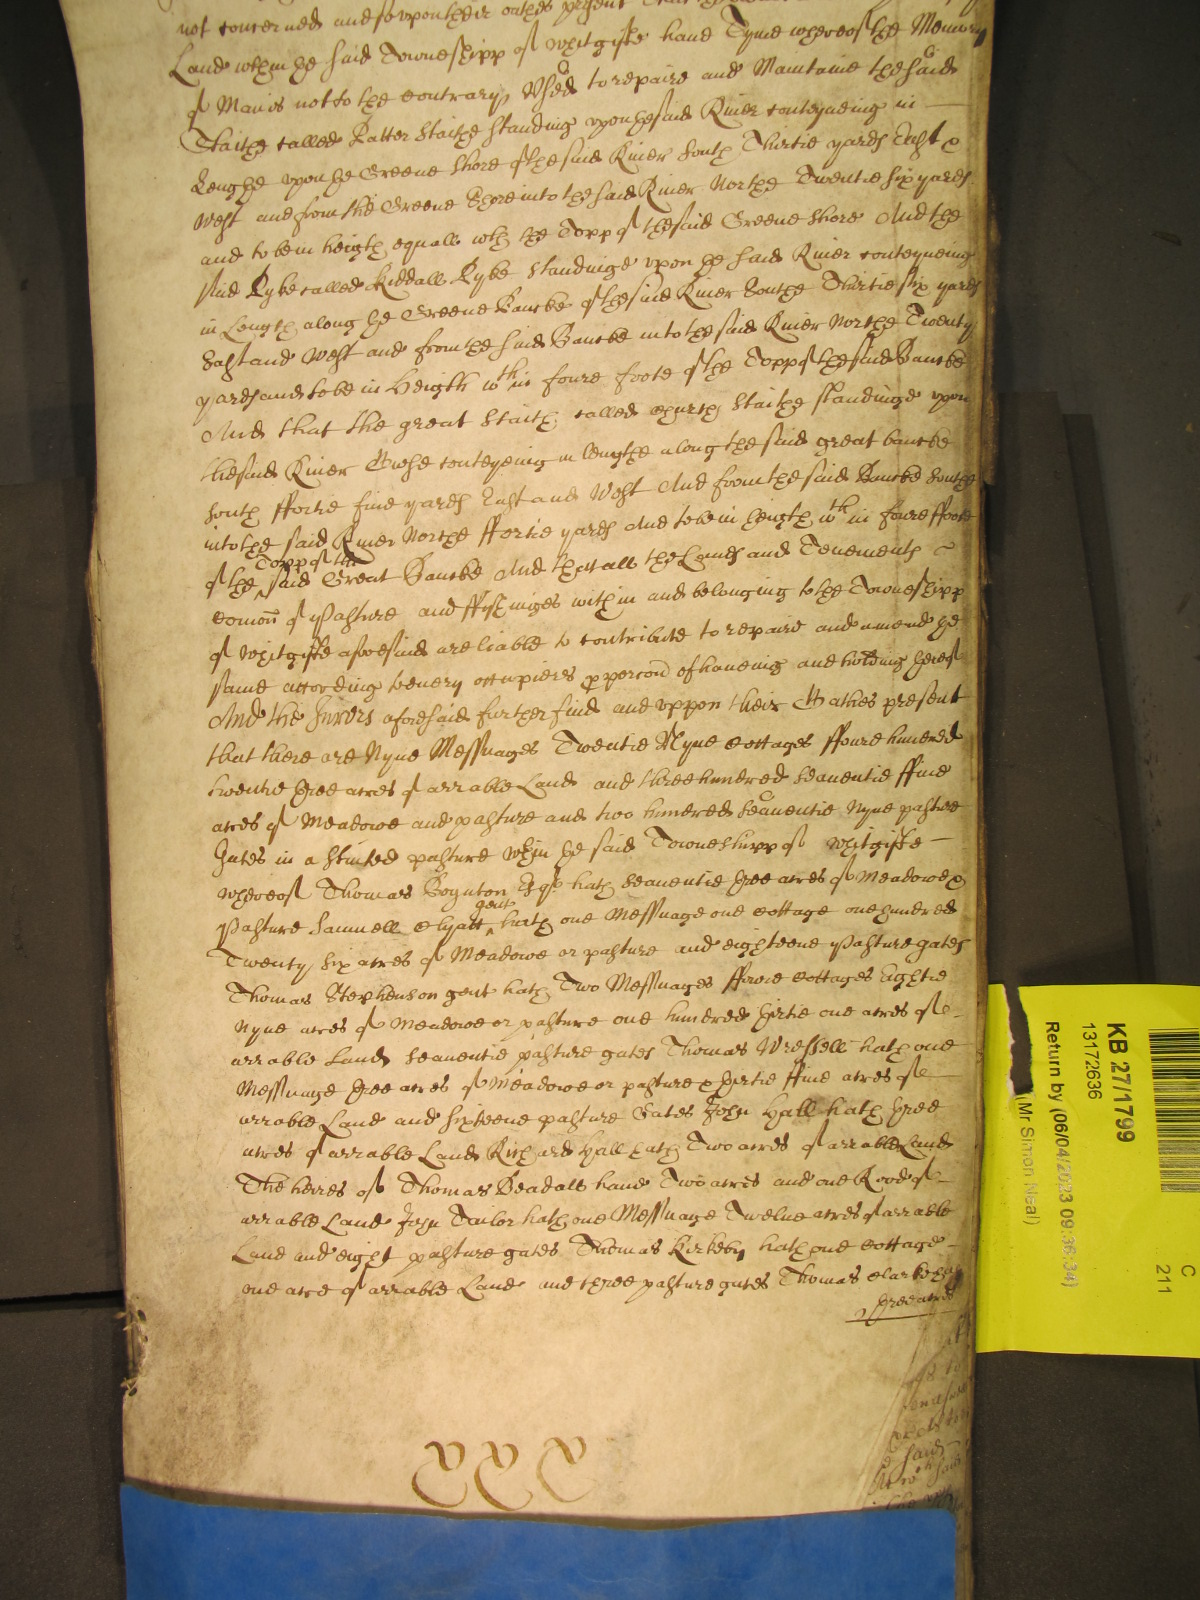 not concerned and so upon their oathes present
Land wthin he said Towneshipp of Whitgifte haue Tyme whereof the Memory
of Man is not to the contrary Used to repaire and Maintaine the said
Staithe called Patter Staithe standing upon he said River conteyneing in
Lengthe upon he Greene Shore of the said River South Thirtie yards East &
West and from the Greene Shore into the said River Northe Twentie Six yards
and to be in heigth equall wth the Topp of the said Greene Shore And the
said Dyke called Kiddall Dyke standinge upon he said River conteyneing
in Length along he Greene Bancke of the said River Southe Thirtie six yards
East and West and from the said Bancke into the said River Northe Twenty
yards and to be in Heigth wthin foure foote of the Topp of the said Bancke
And that the great Staith called Church Staithe standinge upon
the said River Owse conteyneing in lengthe along the said great bancke
South ffortie five yards East and West And from the said Bancke Southe
into the said River Northe ffortie yards And to be in heigth wthin foure ffoote
of the Topp of the said Great Bancke And that all the Lands and Tenements
comon of Pasture and ffishinges within and belonging to the Towneshipp
of Whitgifte aforesaid are liable to contribute to repaire and amend he
same according to every occupiers pporcon of haueing and holding hereof
And the Jurors aforesaid further find and uppon their Oathes present
that there are Nyne Messuages Twentie Nyne Cottages ffoure hundred
twentie hree acres of arrable Land and three hundred seaventie ffive
acres of Meadowe and pasture and two hundred seaventie Nyne pasture
Gates in a stinted pasture wthin he said Towneshipp of Whitgifte
whereof Thomas Boynton Esqr hath seaventie hree acres of Meadowe &
Pasture Samuell Clyatt gent hath one Messuage one cottage one hundred
Twenty six acres of Meadowe or pasture and eighteene Pasture gates
Thomas Stephenson gent hath Two Messuages ffoure cottages Eightie
Nyne acres of Meadowe or pasture one hundred hirtie one acres of
arrable Land seaventie pasture gates Thomas Wressell hath one
Messuage hree acres of Meadowe or pasture & hirtie ffive acres of
arrable Land and sixteene pasture Gates John Hall hath hree
acres of arrable Land Richard Hall hath Two acres of arrable Land
The heires of Thomas Beadall haue Two acres and one Rood of
arrable Land John Tailor hath one Messuage Twelve acres of arrable
Land and eight pasture gates Thomas Kirkeby hath one cottage
one acre of arrable Land and three pasture gates Thomas Clarke hath
hree acres
said
KB 27/1799
13172636
Return by (06/04/2023 09:36:34)
Mr Simon Neal)
C
211